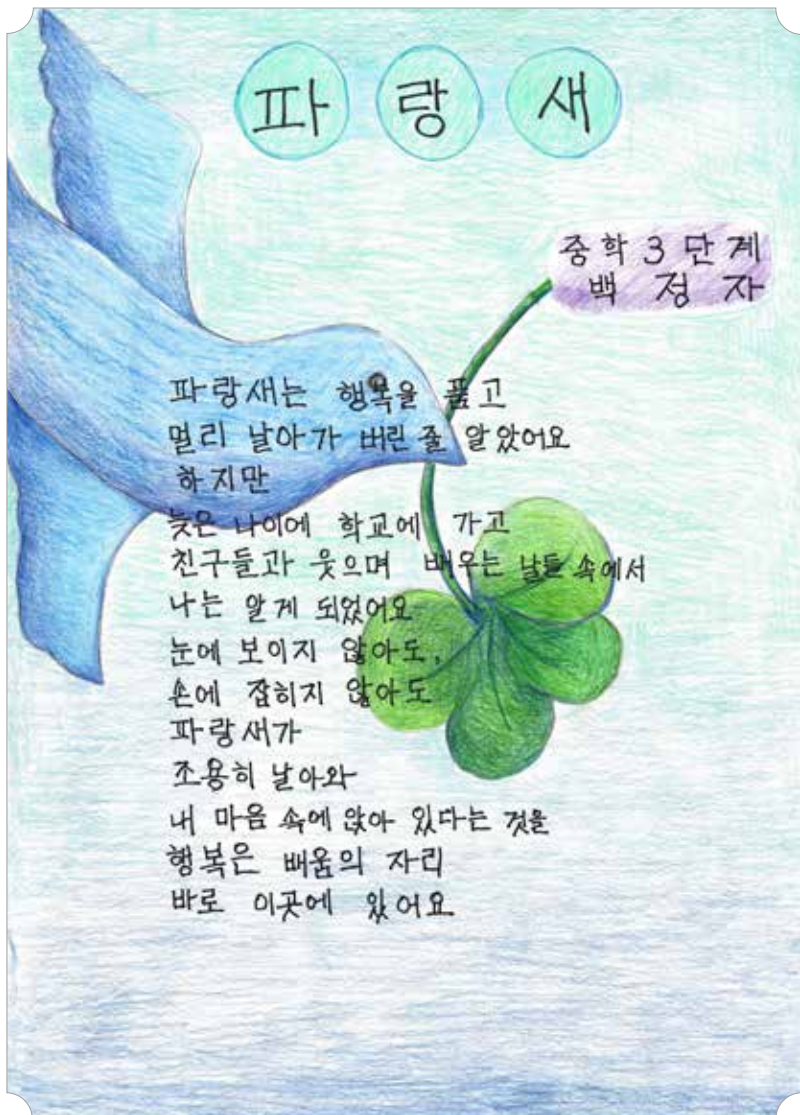 파랑새
중학 3 단계
백정자
파랑새는 행복을 품고
멀리 날아가 버린 줄 알았어요
하지만
늦은 나이에 학교에 가고
친구들과 웃으며 배우는 날들 속에서
나는 알게 되었어요
눈에 보이지 않아도,
손에 잡히지 않아도
파랑새가
조용히 날아와
내 마음 속에 앉아 있다는 것을
행복은 배움의 자리
바로 이곳에 있어요